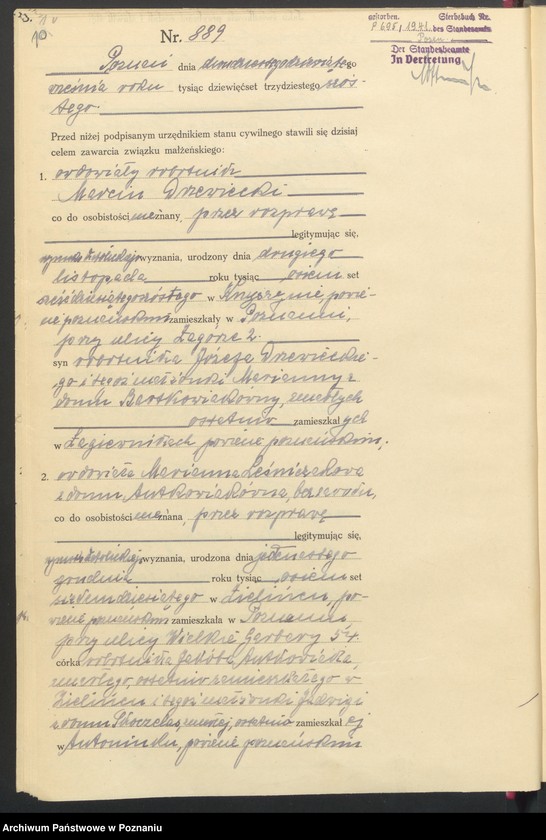 Nr. 889
gestorben. Sterbebuch Nr.
P 698/1941 des Standesamts
Posen
Der Standesbeamte
In Vertretung
Poznań dnia dwudziestego dziewiątego
września roku tysiąc dziewięćset trzydziestego szós-
tego.
Przed niżej podpisanym urzędnikiem stanu cywilnego stawili się dzisiaj
celem zawarcia związku małżeńskiego:
1. owdowiały robotnik
Marcin Drzewiecki
co do osobistości nieznany, przez rozprawę
legitymując się,
rzymsko katolickiego wyznania, urodzony dnia drugiego
listopada roku tysiąc osiem set
sześćdziesiątego szóstego w powie-
cie poznańskim zamieszkały w Poznaniu,
przy ulicy Zagórze 2.
syn robotnika Józefa Drzewieckie-
go i tegoż małżonki Marianny z
domu Bartkowiakówny, zmarłych
ostatnio zamieszkałych
w Łagiewnikach powiecie poznańskim,
2. owdowiała Marianna Leśniczakowa
z domu Antkowiakówna, bez zawodu,
co do osobistości nieznana, przez rozprawę
legitymując się,
rzymsko katolickiego wyznania, urodzona dnia jedenastego
grudnia roku tysiąc osiem set
siedemdziesiątego w Zielińcu, po-
wiecie poznańskim zamieszkała w Poznaniu,
przy ulicy Wielkie Garbary 54.
córka robotnika Jakóba Antkowiaka,
zmarłego, ostatnio zamieszkałego w
Zielińcu i tegoż małżonki Jadwigi
z domu zmarłej, ostatnio zamieszkałej
w Antoninku, powiecie poznańskim
Archiwum Państwowe w Poznaniu